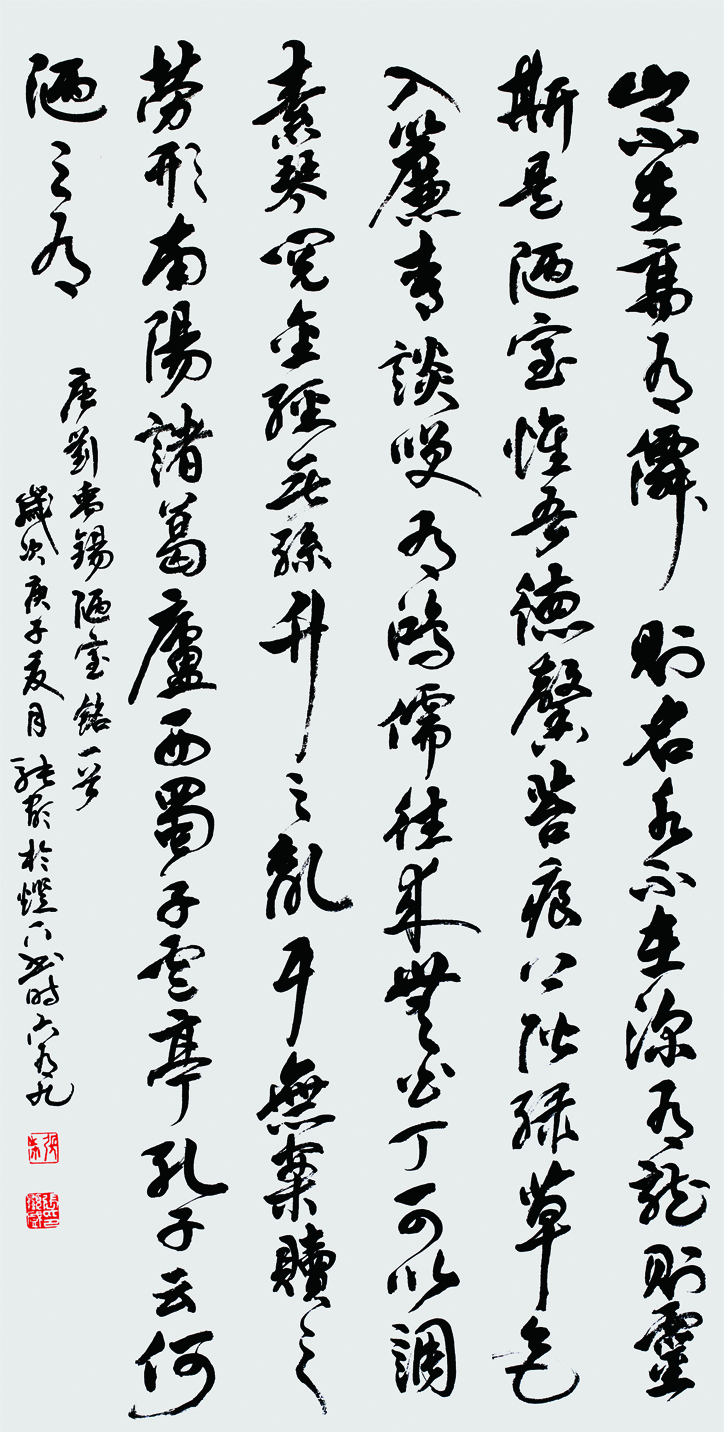 山不在高有僊則名水不在深有龍則靈
斯是陋室惟吾德馨苔痕上階綠草色
入簾青談咲有鴻儒往來無白丁可以調
素琴閱金經无絲竹之亂耳無案牘之
勞形南陽諸葛廬西蜀子雲亭孔子云何
陋之有
唐劉禹錫陋室銘一首
歲次庚子夏月張於燈下書時六有九